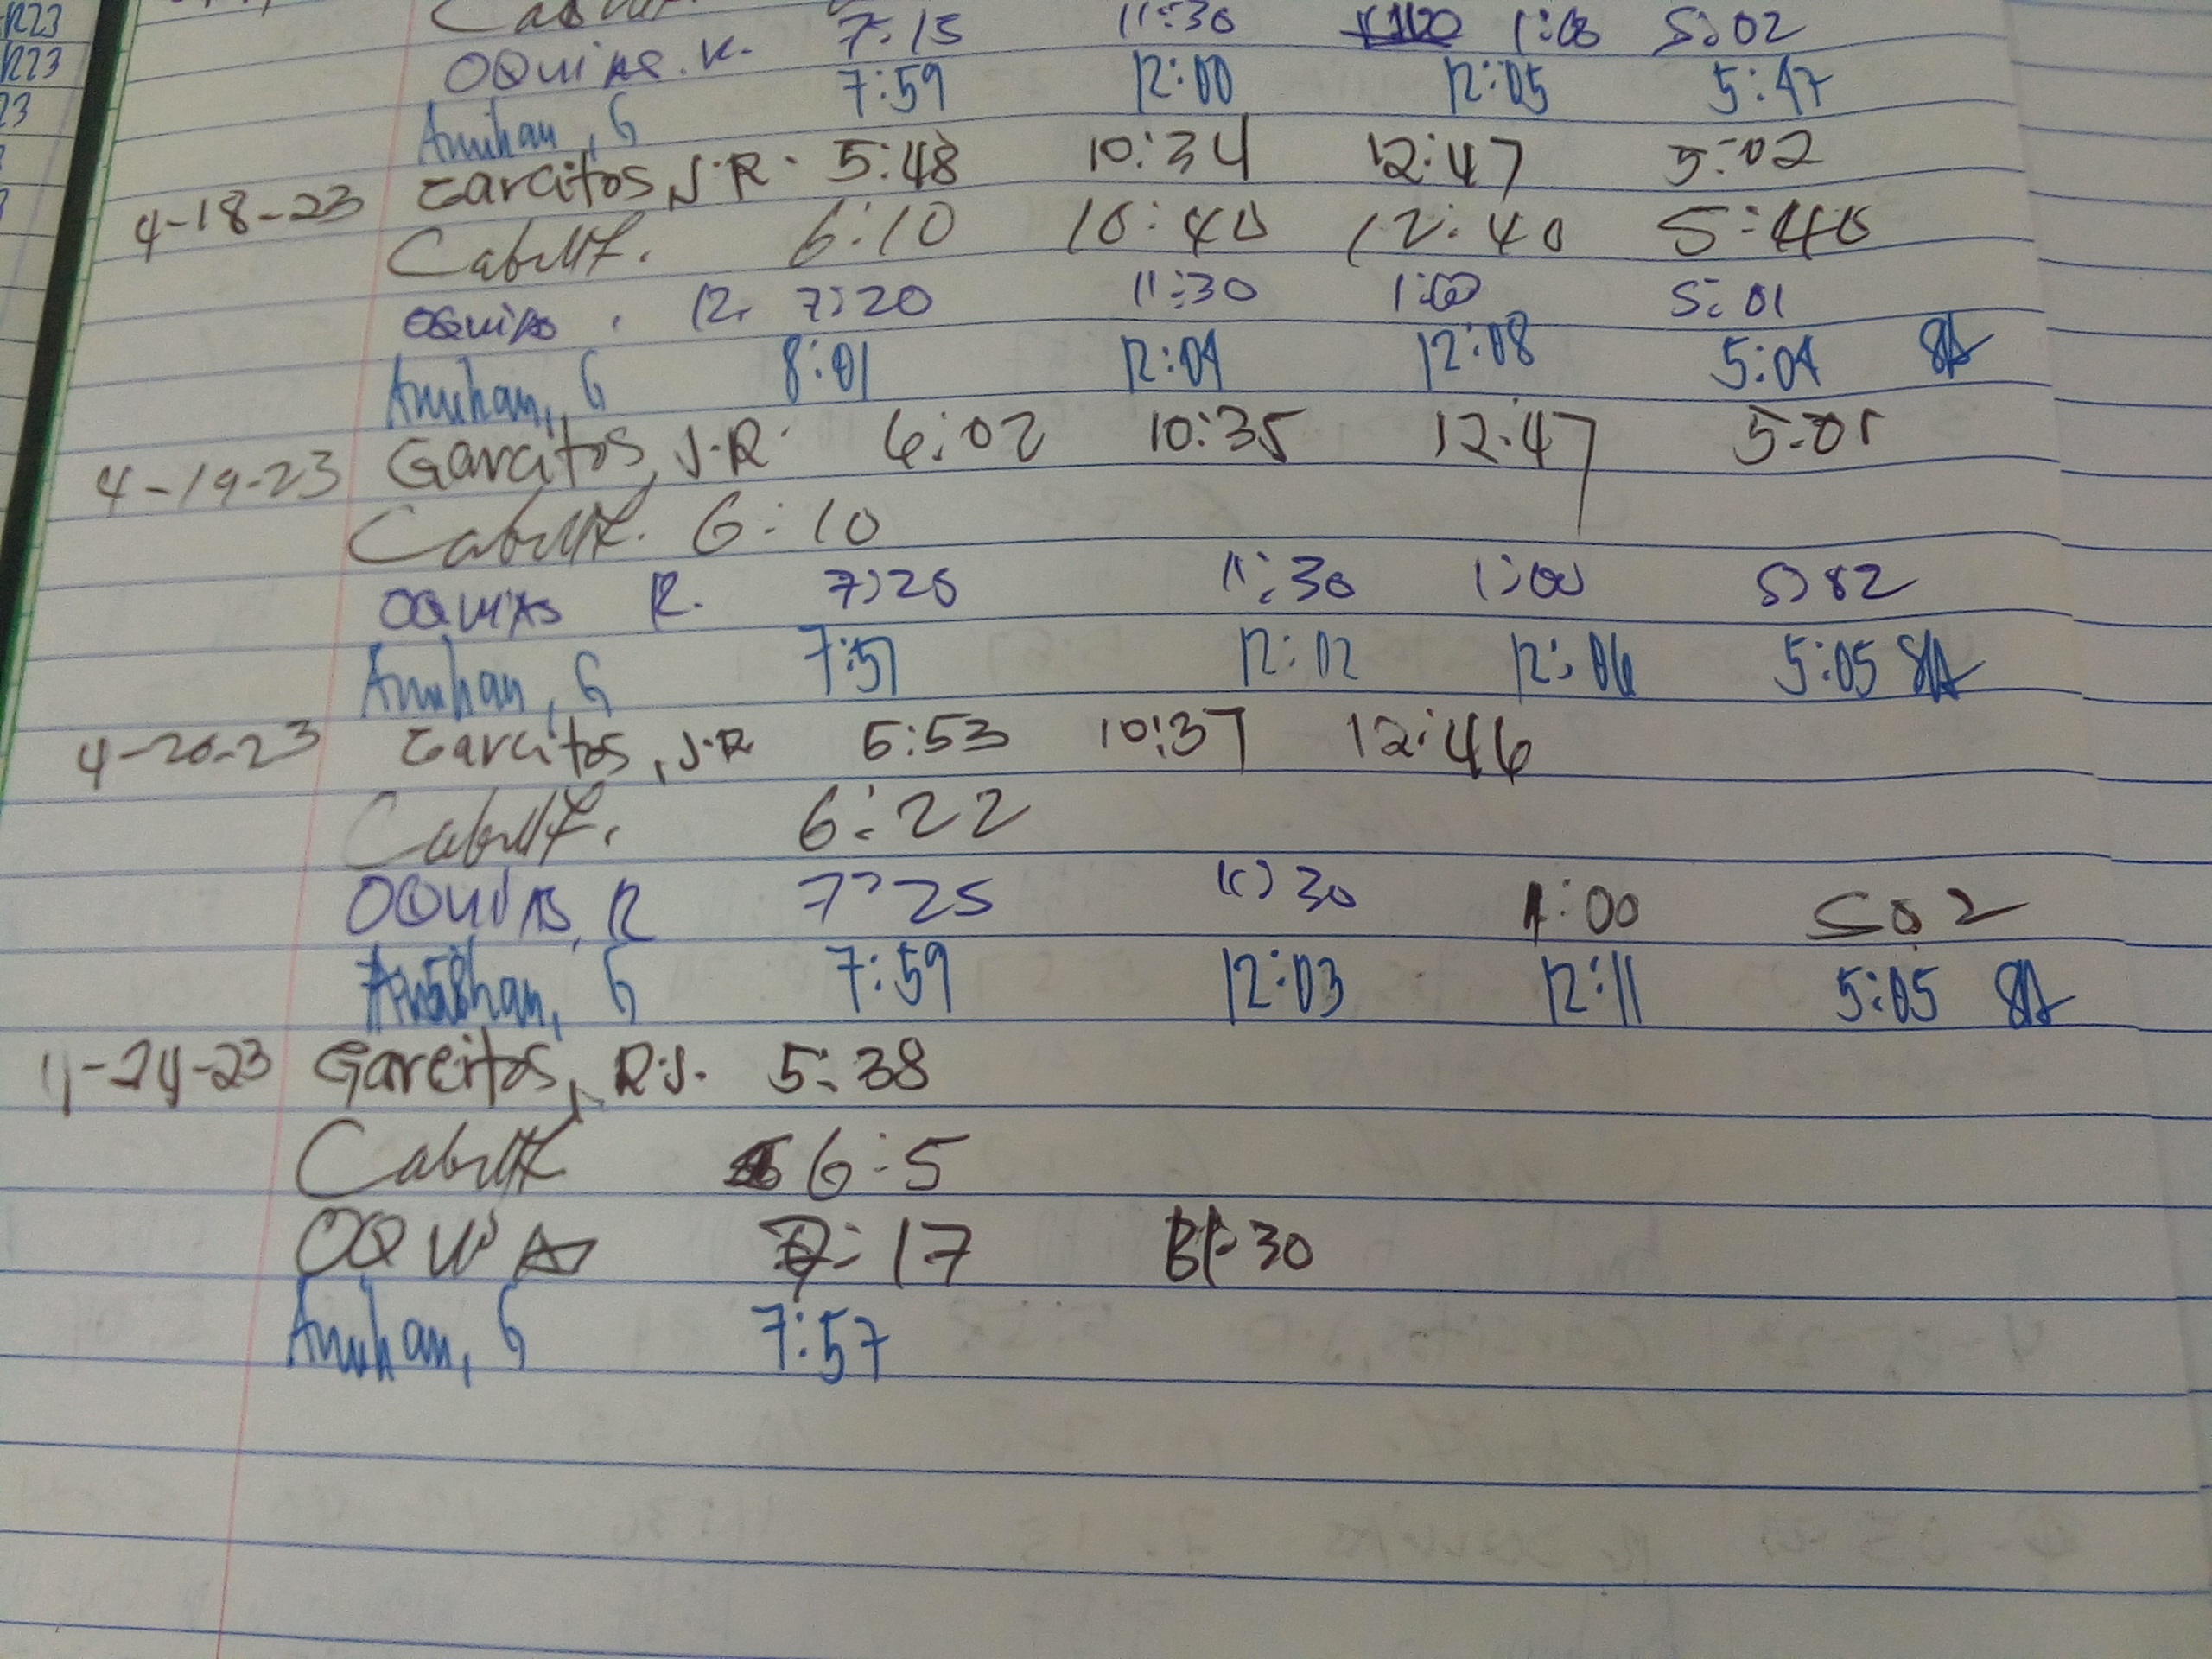 R23
R23
23
OQUIAS. R. 7:15 11:30 1:00 5:02
Anuhan, G 7:59 12:00 12:05 5:47
4-18-23 Garcitos, J.R. 5:48 10:34 12:47 5:02
6:10 10:40 12:40 5:40
OQUIAS, R. 7:20 11:30 1:00 5:01
Anuhan, G 8:01 12:04 12:08 5:04
4-19-23 Garcitos, J.R. 6:02 10:35 12:47 5:01
6:10
OQUIAS R. 7:25 11:30 1:00 5:02
Anuhan, G 7:51 12:02 12:06 5:05
4-20-23 Garcitos, J.R 5:53 10:37 12:46
6:22
OQUIAS, R 7:25 11:30 1:00 5:02
Anuhan, G 7:59 12:03 12:11 5:05
4-24-23 Garcitos, R.J. 5:38
6:5
OQUIAS 7:17 11:30
Anuhan, G 7:57